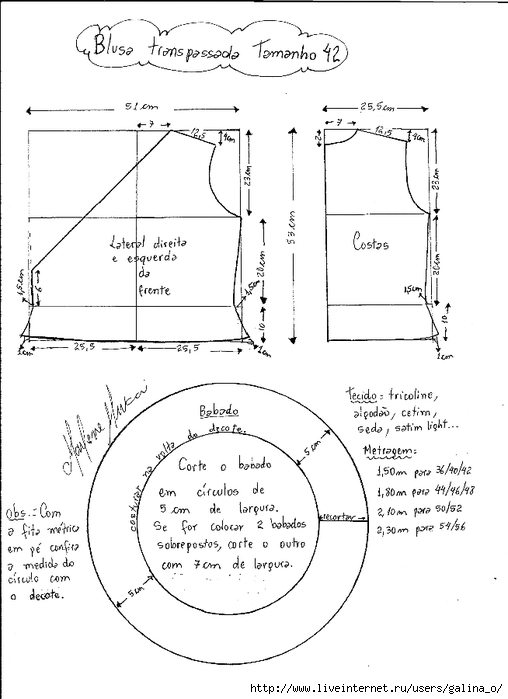 Blusa transpassada Tamanho 42
51 cm
25,5 cm
7
12,5
4cm
23 cm
20 cm
10
1,5 cm
6
1,5 cm
1cm
1cm
25,5
25,5
Lateral direita
e esquerda
da
frente
53 cm
2
7
12,5
4cm
23 cm
20 cm
1,5cm
10
1cm
Costas
Marlene Mukai
Babado
costurar na volta do decote.
5 cm
Corte o babado
em círculos de
5 cm de largura.
Se for colocar 2 babados
sobrepostos, corte o outro
com 7cm de largura.
recortar
5 cm
Tecido = tricoline,
algodão, cetim,
seda, satim light...
Metragem:
1,50m para 36/40/42
1,80m para 44/46/48
2,10m para 50/52
2,30m para 54/56
obs.= Com
a fita métrica
em pé confira
a medida do
círculo com
o decote.
http://www.liveinternet.ru/users/galina_o/